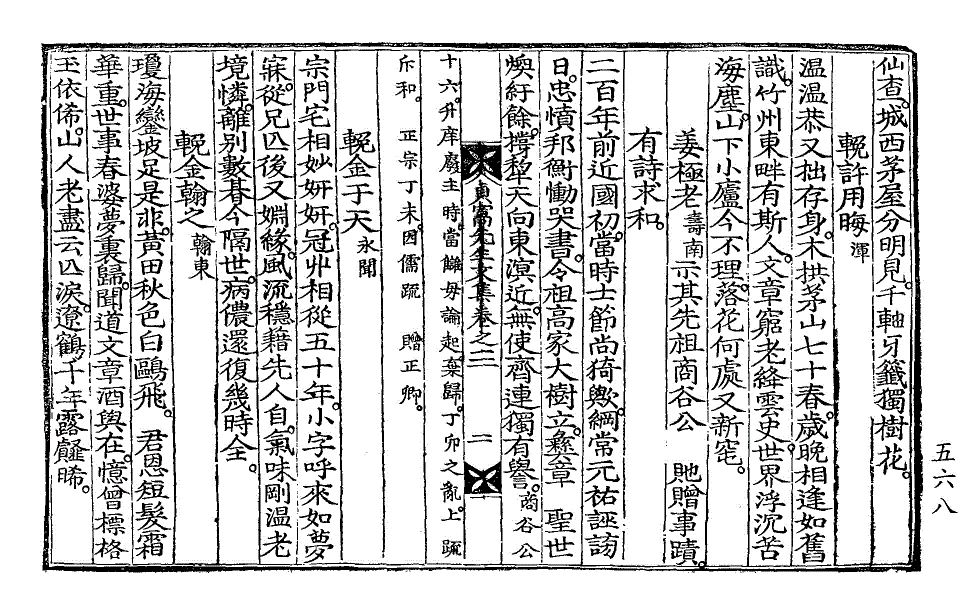 仙查。城西茅屋分明見。千軸牙籤獨樹花。
輓許用晦 渾
溫溫恭又拙存身。木拱茅山七十春。歲晚相逢如舊
識。竹州東畔有斯人。文章窮老絳雲史。世界浮沉苦
海塵。山下小廬今不理。落花何處又新窀。
姜極老 壽南 示其先祖商谷公 貤贈事蹟。
有詩求和。
二百年前近國初。當時士節尚猗歟。綱常元祐誣謗
日。忠憤邦衡慟哭書。令祖高家大樹立。彝章 聖世
煥紆餘。撐犂天向東溟近。無使齊連獨有譽。商谷公
東窩先生文集卷之二 二
十六。升庠廢主時。當讎毋論。起棄歸。丁卯之亂。上疏
斥和。 正宗丁未。因儒疏 贈正卿。
輓金于天 永聞
宗門宅相妙妍妍。冠丱相從五十年。小字呼來如夢
寐。從兄亾後又姻緣。風流穩藉先人自。氣味剛溫老
境憐。離別數朞今隔世。病儂還復幾時全。
輓金翰之 翰東
瓊海鑾坡足是非。黃田秋色白鷗飛。 君恩短髮霜
華重。世事春婆夢裏歸。聞道文章酒興在。憶曾標格
玉依俙。山人老盡云亾淚。遼鶴千年露未晞。
五六八